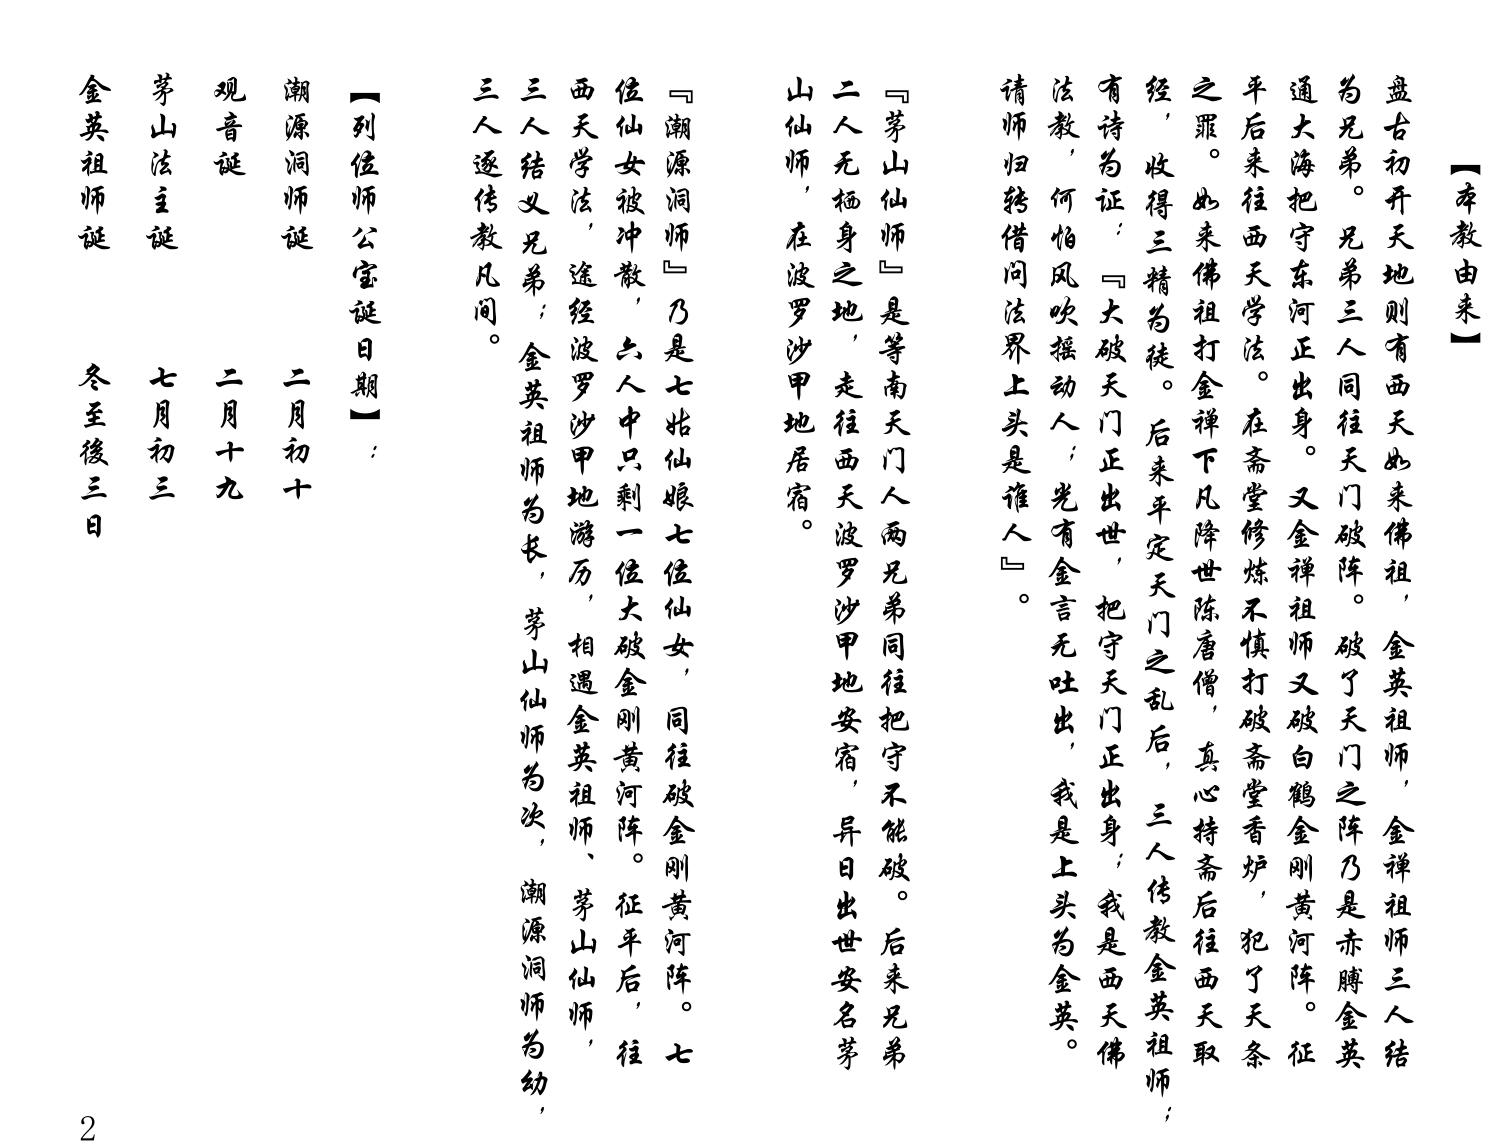 【本教由来】
盘古初开天地则有西天如来佛祖，金英祖师，金禅祖师三人结
为兄弟。兄弟三人同往天门破阵。破了天门之阵乃是赤膊金英
通大海把守东河正出身。又金禅祖师又破白鹤金刚黄河阵。征
平后来往西天学法。在斋堂修炼不慎打破斋堂香炉，犯了天条
之罪。如来佛祖打金禅下凡降世陈唐僧，真心持斋后往西天取
经，收得三精为徒。后来平定天门之乱后，三人传教金英祖师；
有诗为证：『大破天门正出世，把守天门正出身；我是西天佛
法教，何怕风吹摇动人；光有金言无吐出，我是上头为金英。
请师归转借问法界上头是谁人』。
『茅山仙师』是等南天门人两兄弟同往把守不能破。后来兄弟
二人无栖身之地，走往西天波罗沙甲地安宿，异日出世安名茅
山仙师，在波罗沙甲地居宿。
『潮源洞师』乃是七姑仙娘七位仙女，同往破金刚黄河阵。七
位仙女被冲散，六人中只剩一位大破金刚黄河阵。征平后，往
西天学法，途经波罗沙甲地游历，相遇金英祖师、茅山仙师，
三人结义兄弟；金英祖师为长，茅山仙师为次，潮源洞师为幼，
三人逐传教凡间。
【列位师公宝诞日期】：
潮源洞师诞 二月初十
观音诞 二月十九
茅山法主诞 七月初三
金英祖师诞 冬至後三日
2